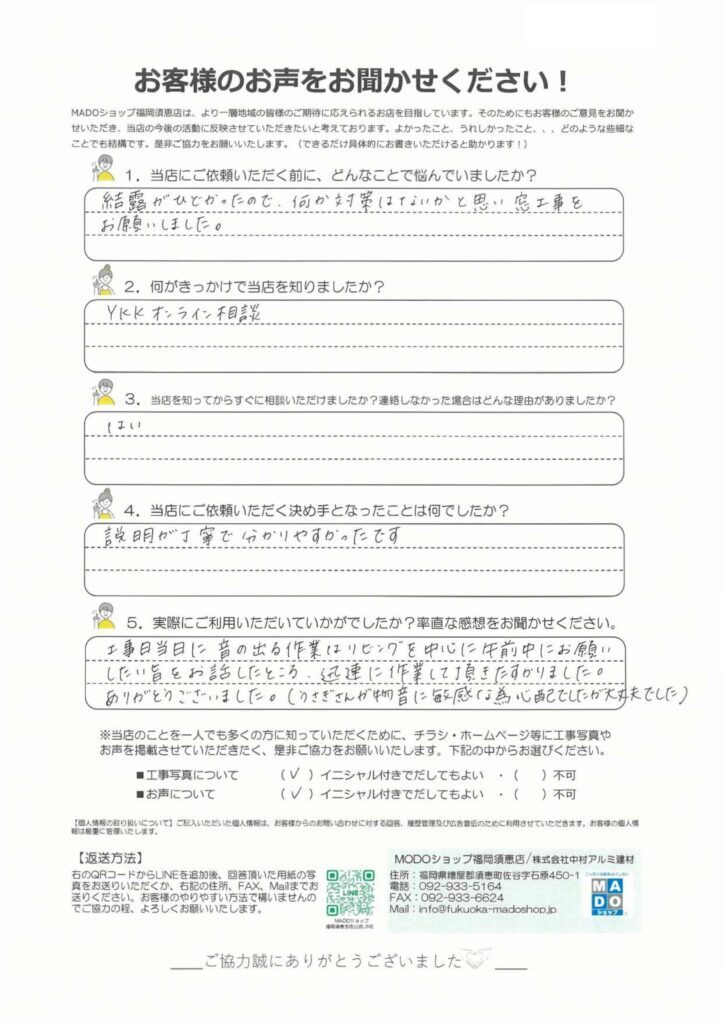 お客様のお声をお聞かせください！
MADOショップ福岡須恵店は、より一層地域の皆様のご期待に応えられるお店を目指しています。そのためにもお客様のご意見をお聞か
せいただき、当店の今後の活動に反映させていただきたいと考えております。よかったこと、うれしかったこと、、、どのような些細な
ことでも結構です。是非ご協力をお願いいたします。（できるだけ具体的にお書きいただけると助かります！）
1．当店にご依頼いただく前に、どんなことで悩んでいましたか？
結露がひどかったので、何か対策はないかと思い窓工事を
お願いしました。
2．何がきっかけで当店を知りましたか？
YKKオンライン相談
3．当店を知ってからすぐに相談いただけましたか？連絡しなかった場合はどんな理由がありましたか？
はい
4．当店にご依頼いただく決め手となったことは何でしたか？
説明が丁寧で分かりやすかったです
5．実際にご利用いただいていかがでしたか？率直な感想をお聞かせください。
工事日当日に音の出る作業はリビングを中心に午前中にお願い
したい旨をお話したところ、迅速に作業して頂きたすかりました。
ありがとうございました。（うさぎさんが物音に敏感な為心配でしたが大丈夫でした）
※当店のことを一人でも多くの方に知っていただくために、チラシ・ホームページ等に工事写真や
お声を掲載させていただきたく、是非ご協力をお願いいたします。下記の中からお選びください。
■工事写真について （✓）イニシャル付きでだしてもよい ・（ ）不可
■お声について （✓）イニシャル付きでだしてもよい ・（ ）不可
【個人情報の取り扱いについて】ご記入いただいた個人情報は、お客様からのお問い合わせに対する回答、履歴管理及び広告宣伝のために利用させていただきます。お客様の個人情
報は厳重に管理いたします。
【返送方法】
右のQRコードからLINEを追加後、回答頂いた用紙の写
真をお送りいただくか、右記の住所、FAX、Mailまでお
送りください。お客様のやりやすい方法で構いませんの
でご協力の程、よろしくお願いいたします。
MADOショップ
福岡須恵店公式LINE
MADOショップ福岡須恵店/株式会社中村アルミ建材
住所：福岡県糟屋郡須恵町佐谷字石原450-1
電話：092-933-5164
FAX：092-933-6624
Mail：info@fukuoka-madoshop.jp
MADO
ショップ
ご協力誠にありがとうございました